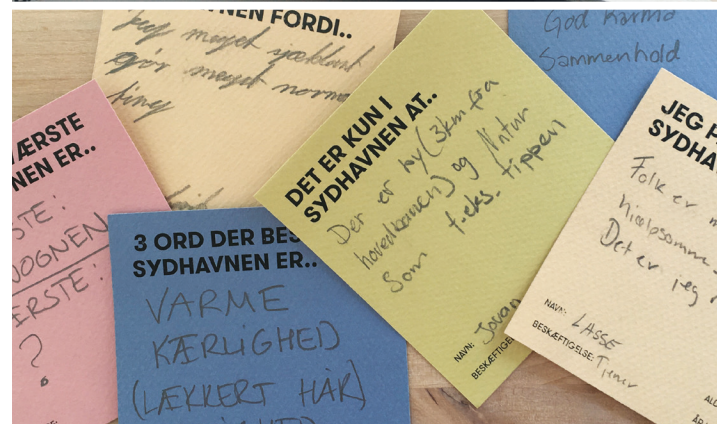 VNEN FORDI..
Jeg meget sjældent
gør meget norma
ting
God Karma
Sammenhold
ÆRSTE
NEN ER..
STE:
OGNEN
ERSTE:
?
3 ORD DER BES
SYDHAVNEN ER..
VARME
KÆRLIGHED
(LÆKKERT HÅR)
DET ER KUN I
SYDHAVNEN AT..
Der er by (3km fra
hovedbanen) og Natur
Som f.eks. tippen
NAVN: Jovan
BESKÆFTIGEL
JEG
SYDHA
Folk er
hjælpsomme
Det er jeg
NAVN: LASSE
BESKÆFTIGELSE: Tjener